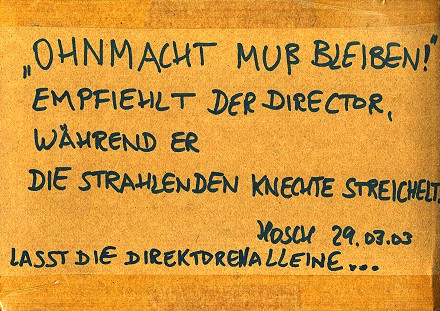 „OHNMACHT MUß BLEIBEN!"
EMPFIEHLT DER DIRECTOR,
WÄHREND ER
DIE STRAHLENDEN KNECHTE STREICHELT.
HOSCH 29.03.03
LASST DIE DIREKTOREN ALLEINE...